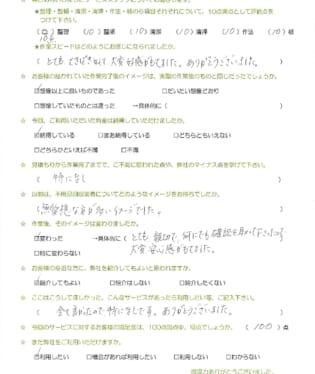 ★整理・整頓・清掃・清潔・作法・躾の6項目それぞれについて、10点満点として評価点を
つけて下さい。
(10) 整理 (10) 整頓 (10) 清掃 (10) 清潔 (10) 作法 (10) 躾
★作業スピードはどのようにお感じになられましたか。
とてもてきぱきして大変好感がもてました。ありがとうございました。
☆ お客様の描れていた作業完了後のイメージは、実際の作業後のものと同じだったでしょうか。
□想像以上に良いものであった □だいたい想像どおり
□想像していたものとは違った →具体的に( )
☆ 今回、ご利用いただいた料金は納得していただけましたか。
□納得している □まあ納得している □どちらともいえない
□どちらかといえば不満 □不満
☆ 見積もりから作業完了までで、ご不満に思われた点や、弊社のマイナス点を挙げて下さい。
( 特になし )
☆ 以前は、不用品回収業者についてどのようなイメージをお持ちでしたか。
(無愛想な方が多いイメージでした。 )
☆ 作業後、そのイメージは変わりましたか。
□変わった →具体的に( とても親切で、何にでも確認を取って下さったので
□特に変わらない 大変安心感がもてました。
☆ お客様の身近な方に、弊社を紹介してもよいと思われますか。
□紹介してもよい □紹介はしない □紹介したくない
☆ ここはこうして欲しかった、こんなサービスがあったら利用したい等、ご記入下さい。
( 全て良かったので特になしです。ありがとうございました。 )
☆ 今回のサービスに対するお客様の満足度は、100点満点中、何点でしょうか。 (100)点
☆ また弊社をご利用いただけますか。
□利用したい □機会があれば利用したい □利用しない □わからない
ご協力ありがとうございました。